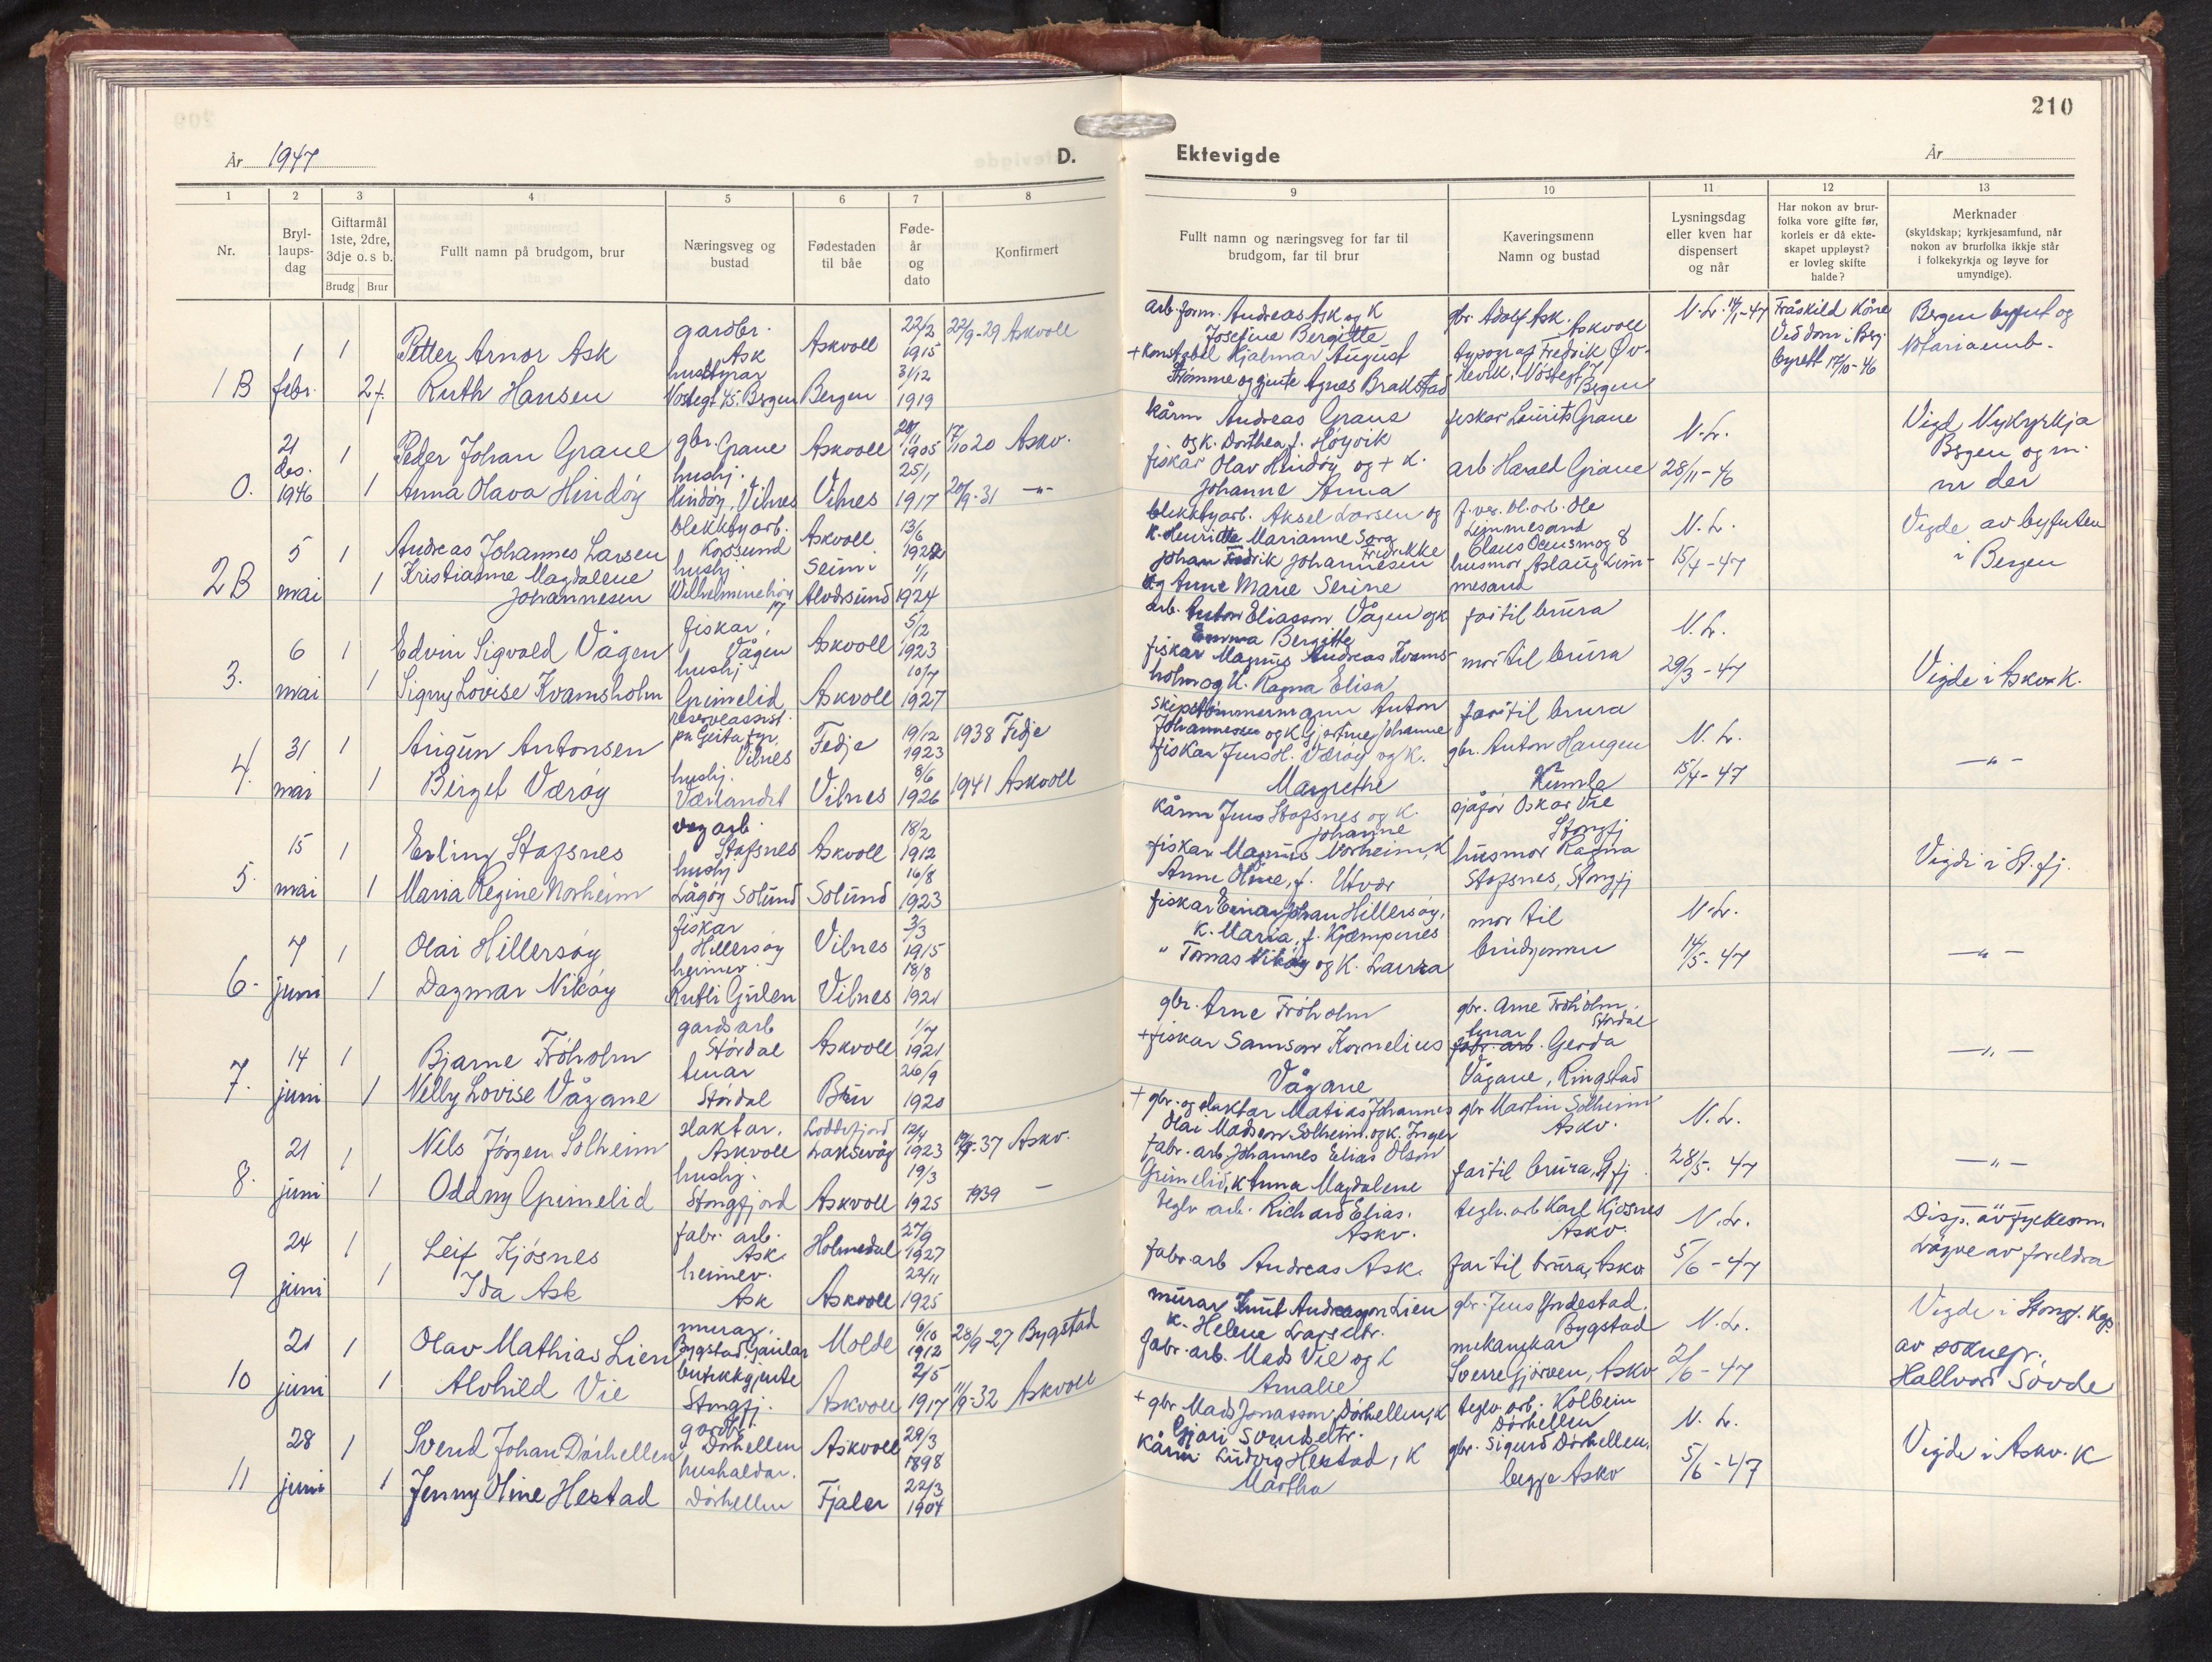 210
År 1947
D.
Ektevigde
År
1
2
3
4
5
6
7
8
9
10
11
12
13
Nr.
Bryl-
laups-
dag
Giftarmål
1ste, 2dre,
3dje o. s b.
Brudg
Brur
Fullt namn på brudgom, brur
Næringsveg og
bustad
Fødestaden
til båe
Føde-
år
og
dato
Konfirmert
Fullt namn og næringsveg for far til
brudgom, far til brur
Kaveringsmenn
Namn og bustad
Lysningsdag
eller kven har
dispensert
og når
Har nokon av brur-
folka vore gifte før,
korleis er då ekte-
skapet uppløyst?
er lovleg skifte
halde?
Merknader
(skyldskap; kyrkjesamfund, når
nokon av brurfolka ikkje står
i folkekyrkja og løyve for
umyndige).
1 B
1
febr.
1
Petter Arnor Ask
gardbr.
Ask
Askvoll
22/2
1915
22/9-29 Askvoll
2
Ruth Hansen
hustyrar
Bergen
Bergen
31/12
1919
arb.form. Andreas Ask og K
Josefine Bergitte
+ Konstabel Hjalmar August
Agnes Brakstad
gbr. Adolf Ask.
Askvoll
typograf Fredrik Øv-
Bergen
N.L. 14/1-47
Fråskild Kåne
Ved dom i Berg.
byrett 17/10-46
Bergen byfut og
Notariemb.
0.
21
des.
1946
1
Peder Johan Grane
gbr. Grane
Askvoll
1905
17/10 20 Askv.
1
Anna Olava Hindøy
hushj.
Hindøy, Vilnes
Vilnes
25/1
1917
20/9-31 -"-
kårm Andreas Grane
og k. Dorthea f. Høyvik
fiskar Olav Hindøy og + k.
Johanne Anna
fiskar Laurits Grane
arb Harald Grane
N.L.
28/11-46
Vigd Nykyrkja
Bergen og m.
nr der
2 B
5
mai
1
Andreas Johannes Larsen
blekktyarb.
Korssund
Askvoll
13/6
1922
1
Kristianne Magdalene
Johannesen
hushj.
17
Seim i
Alversund
1/1
1924
blekktyarb. Aksel Larsen og
K. Henriette Marianne Sara
Johan Fredrik Johannesen
og Anne Marie Serine
Limmesand
Claus Ocensmog 8
husmor Aslaug Lim-
mesand
N.L.
15/4-47
Vigde av byfuten
i Bergen
3.
6
mai
1
Edvin Sigvald Vågen
fiskar,
Vågen
Askvoll
5/12
1923
1
Signy Lovise Kvamsholm
hushj
Grimelid
Askvoll
10/7
1927
arb. Anton Eliasson Vågen og k
Emma Bergitte
fiskar Magnus Andreas Kvams-
holm og K. Ragna Elisa
far til brura
mor til brura
N.L.
29/3-47
Vigde i Askv. K.
4.
31
mai
1
Arigun Antonsen
reserveassist.
på Geita fyr,
Vilnes
Fedje
19/12
1923
1938 Fedje
1
Birget Værøy
hushj.
Værlandet
Vilnes
8/6
1926
1941 Askvoll
Skipstømmermann Anton
Johannessen og K Gjertine Johanne
fiskar Jens H. Værøy og K.
Margrethe
far til brura
gbr. Anton Haugen
Kumle
N.L.
15/4-47
-"-
5.
15
mai
1
Erling Stafsnes
vegarb.
Stafsnes
Askvoll
18/2
1912
1
Maria Regine Norheim
hushj
Lågøy Solund
Solund
16/8
1923
kårm Jens Stafsnes og K.
Johanne
fiskar Magnus Norheim, k
Anne Oline, f. Utvær
sjåfør Oskar Vie
Stongfj
husmor Ragna
Stafsnes, Stongfj
Vigde i St.fj.
6.
7
juni
1
Olai Hillersøy
fiskar
Hillersøy
Vilnes
3/3
1915
1
Dagmar Nikøy
heimev.
Rutli Gulen
Vilnes
18/8
1921
fiskar Einar Johan Hillersøy,
K. Maria, f. Kjempenes
" Tomas Nikøy og K. Laura
mor til
brudgomen
N.L.
14/5-47
-"-
7.
14
juni
1
Bjarne Frøholm
gardsarb
Stórdal
Askvoll
1/7
1921
1
Nelly Lovise Vågane
tenar
Stórdal
Bru
26/9
1920
gbr. Arne Frøholm
+ fiskar Samson Kornelius
Vågane
gbr. Arne Frøholm.
Stórdal
tenar
fabr. arb. Gerda
Vågane, Ringstad
-"-
8.
21
juni
1
Nils Jørgen Solheim
slaktar.
Askvoll
Loddefjord
Laksevåg
12/4
1923
-37 Askv.
1
Oddny Grimelid
hushj.
Stongfjord
Askvoll
19/3
1925
1939 -
+ gbr. og slaktar Matias Johannes
Olai Madsen Solheim. og K. Inger
fabr. arb. Johannes Elias Olson
Grimelid, k Anna Magdalene
gbr Martin Solheim
Askv.
far til brura, St.fj
N.L.
28/5. 47
-"-
9
24
juni
1
Leif Kjøsnes
fabr. arb.
Ask
Holmedal
27/9
1927
1
Ida Ask
heimev.
Ask
Askvoll
22/11
1925
teglv arb. Richard Elias.
Askv.
fabr.arb Andreas Ask.
teglv.arb Karl Kjøsnes
Askv.
far til brura, Askv
N.L.
5/6-47
Disp. av fylkesm.
Løyve av foreldra
10
21
juni
1
Olav Mathias Lien
murar,
Bygstad, Gaular
Molde
6/10
1912
28/9-27 Bygstad
1
Alvhild Vie
butikkgjente
Stongfj.
Askvoll
2/5
1917
11/9-32 Askvoll
murar Knut Andreasson Lien
K. Helene Larsdtr.
fabr. arb. Mads Vie og k
Amalie
gbr. Jens Yndestad.
Bygstad
mekanikar
Sverre Gjørven, Askv
N.L.
2/6-47
Vigde i Stongf. kap.
av soknepr.
Hallvard Søvde
11
28
juni
1
Svend Johan Dørhellen
gardbr.
Dørhellen
Askvoll
29/3
1898
1
Jenny Oline Hestad
hushaldar.
Dørhellen
Fjaler
22/3
1904
+ gbr Mads Jonasson Dørhellen, K
Gjøri Svendsdtr.
Kårm Ludvig Hestad, K
Martha
teglv. arb. Kolbein
Dørhellen
gbr. Sigurd Dørhellen,
begge Askv
N.L.
5/6-47
Vigde i Askv. K